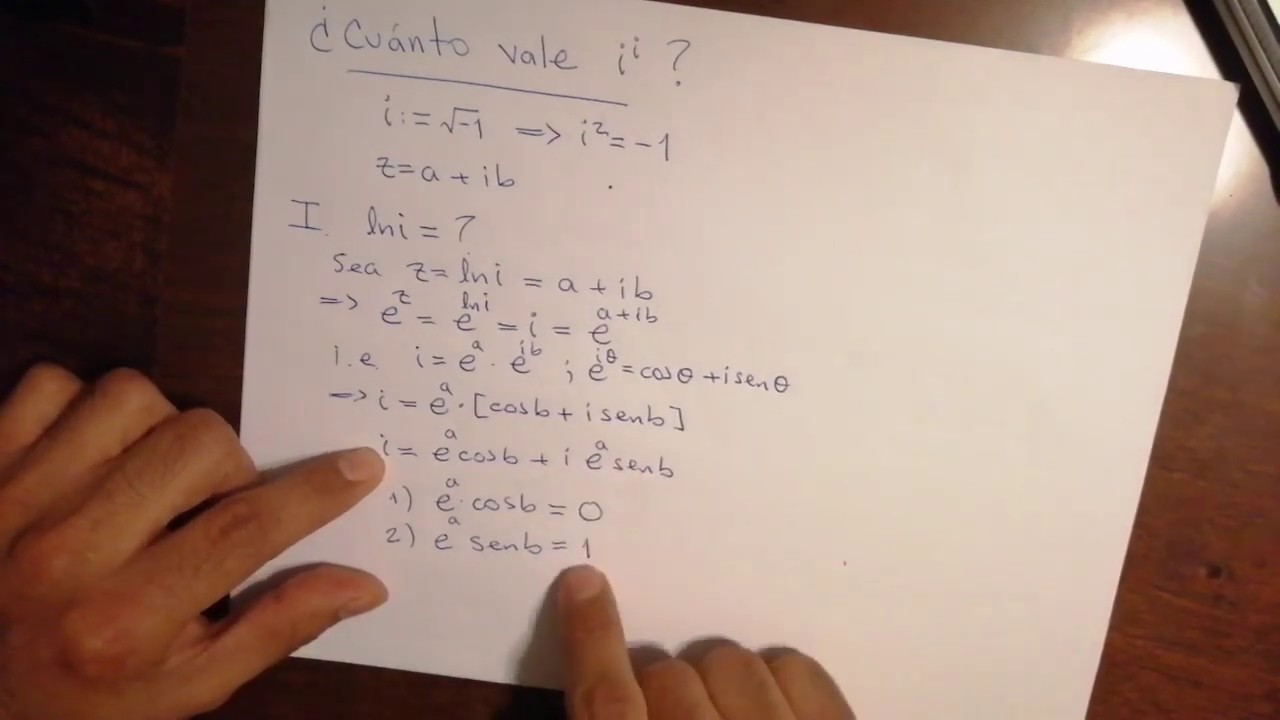 ¿Cuánto vale iⁱ?
i := √-1 => i² = -1
z = a + ib
I. ln i = ?
Sea z = ln i = a + ib
=> e^z = e^{ln i} = i = e^{a+ib}
i.e. i = e^a · e^{ib} ; e^{iθ} = cosθ + i senθ
=> i = e^a · [cosb + i senb]
i = e^a cosb + i e^a senb
1) e^a · cosb = 0
2) e^a senb = 1